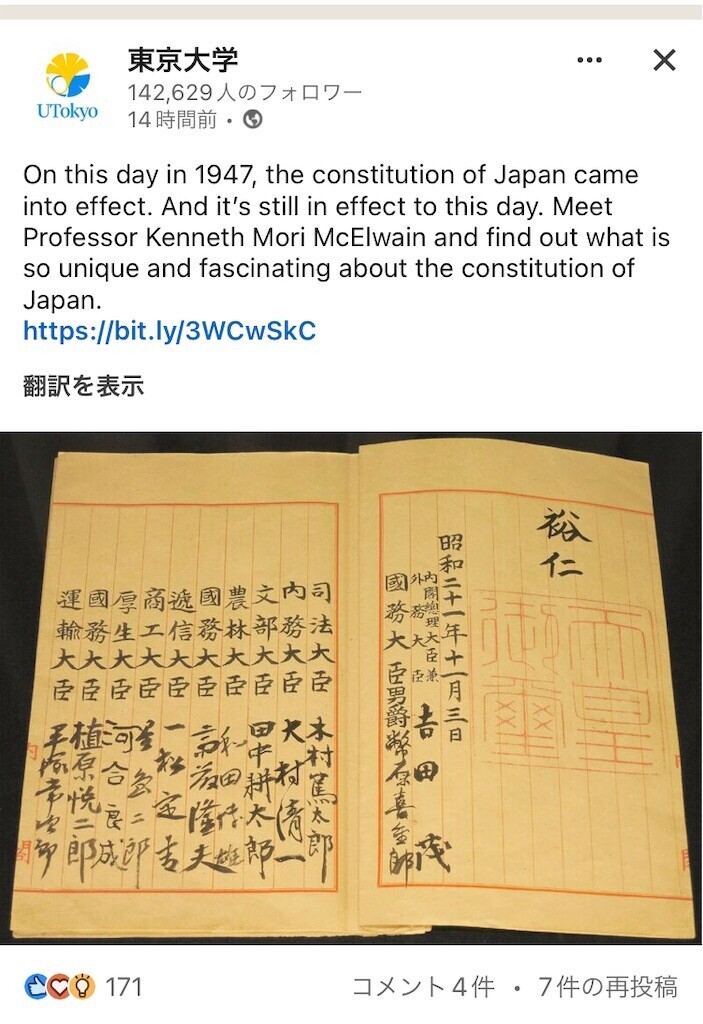 東京大学
142,629人のフォロワー
14時間前 •
UTokyo
On this day in 1947, the constitution of Japan came
into effect. And it's still in effect to this day. Meet
Professor Kenneth Mori McElwain and find out what is
so unique and fascinating about the constitution of
Japan.
https://bit.ly/3WCwSkC
翻訳を表示
裕仁
昭和二十一年十一月三日
内閣總理大臣兼
外務大臣 吉田茂
國務大臣 男爵 幣原喜重郎
司法大臣 木村篤太郎
内務大臣 大村清一
文部大臣 田中耕太郎
農林大臣 和田博雄
國務大臣 斎藤隆夫
遞信大臣 一松定吉
商工大臣 星島二郎
厚生大臣 河合良成
國務大臣 植原悦二郎
運輸大臣 平塚常次郎
171
コメント4件 • 7件の再投稿